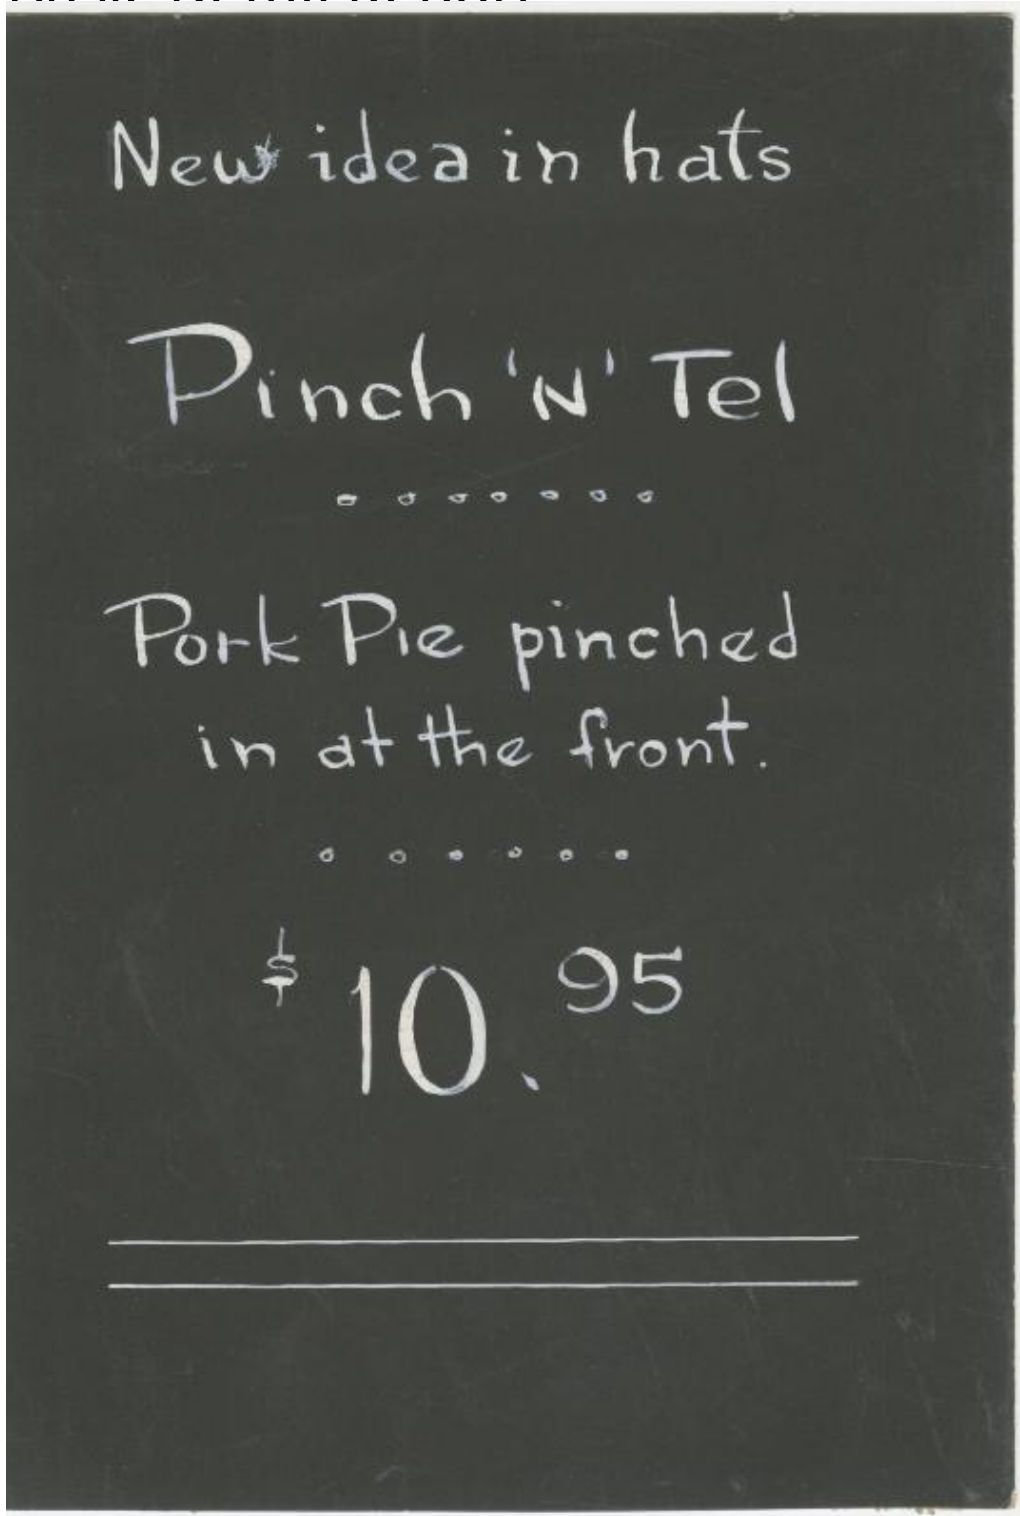 New idea in hats
Pinch 'N' Tel
Pork Pie pinched
in at the front.
$10.95